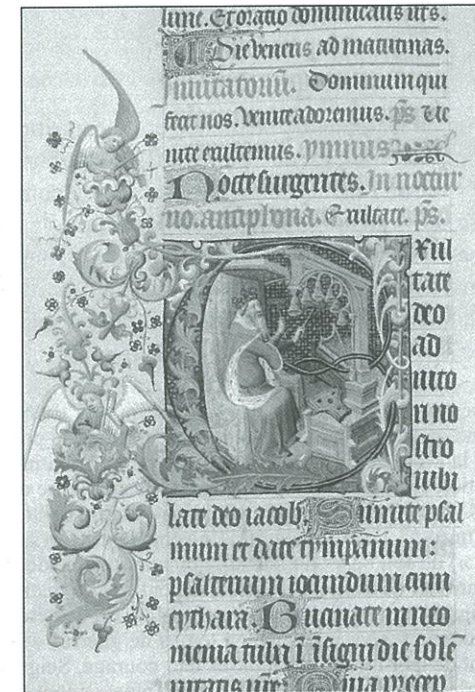 lune. Et oratio dominicalis
Die veneris ad matutinas.
Inuitatoriū. Dominum qui
fecit nos. Venite adoremus. ps̄ Ve
nite exultemus. ymnus
Nocte surgentes. In noctur
no. antiphona. Exultate. ps̄.
EXul
tate
deo
ad
iuto
ri no
stro
iubi
late deo iacob Sumite psal
mum et date tympanum:
psalterium iocundum cum
cythara. Bucinate in neo
menia tuba ī īsigni die solē
nitatis Quia precep